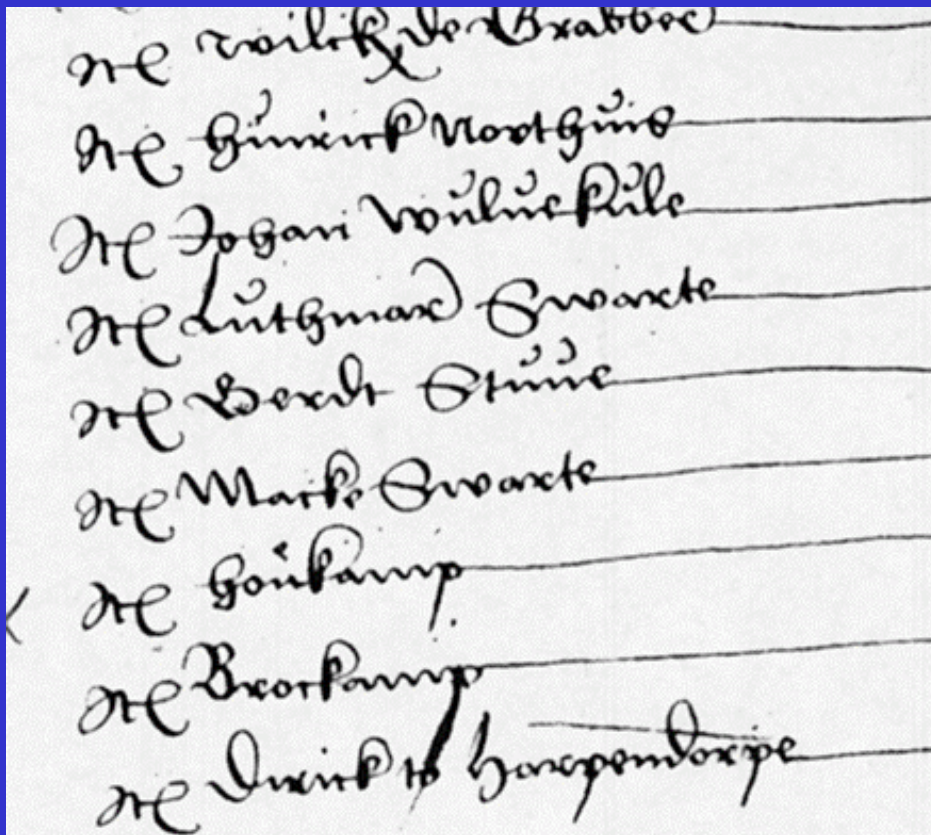 Itē Wilcke de Grabber
Itē Hinrick Northuis
Itē Johan Wuluekule
Itē Luthmar Swarte
Itē Gerdt Stuue
Itē Macke Swarte
Itē Houkamp
Itē Brockamp
Itē Dirick to Harpendorpe